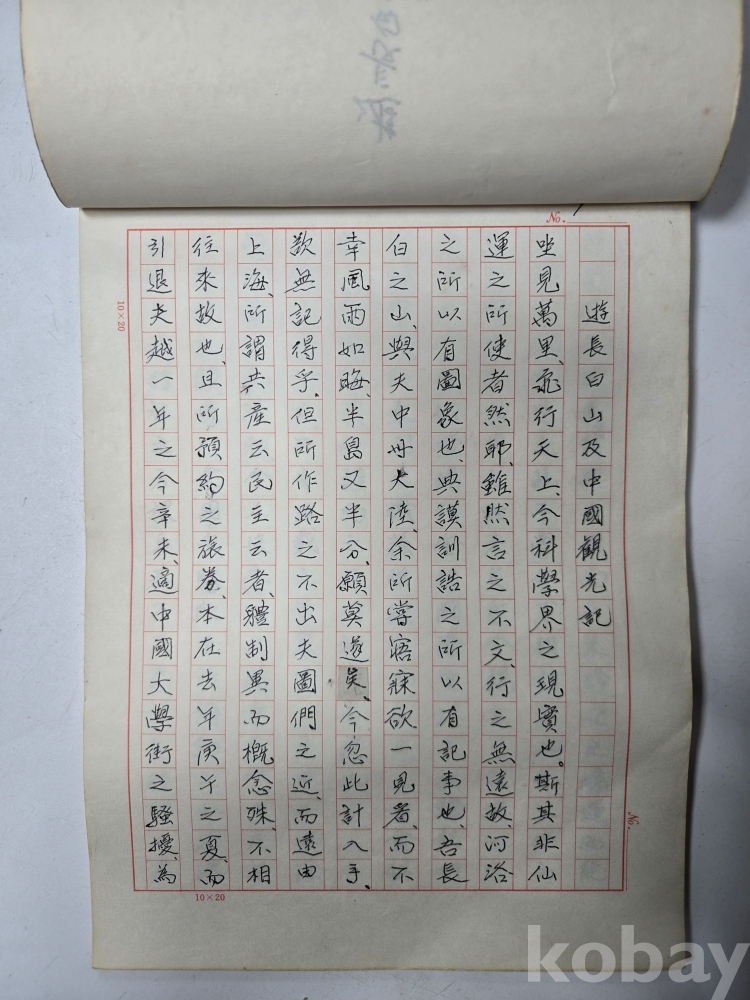 No.
遊長白山及中國観光記
坐見萬里、飛行天上、今科學界之現實也。斯其非仙
運之所使者然耶、雖然言之不文、行之無遠、故河洛
之所以有圖象也、典謨訓誥之所以有記事也、吾長
白之山、與夫中州大陸、余所嘗寤寐欲一見者、而不
幸風雨如晦、半島又半分、願莫遂矣、今忽此計入手、
欲無記得乎、但所作路之不出夫圖們之近、而遠由
上海、所謂共産云民主云者、體制異而概念殊、不相
往來故也、且所預約之旅券、本在去年庚午之夏、而
引退夫越一年之今辛未、適中國大學街之騷擾、為
10×20
10×20
No.
kobay